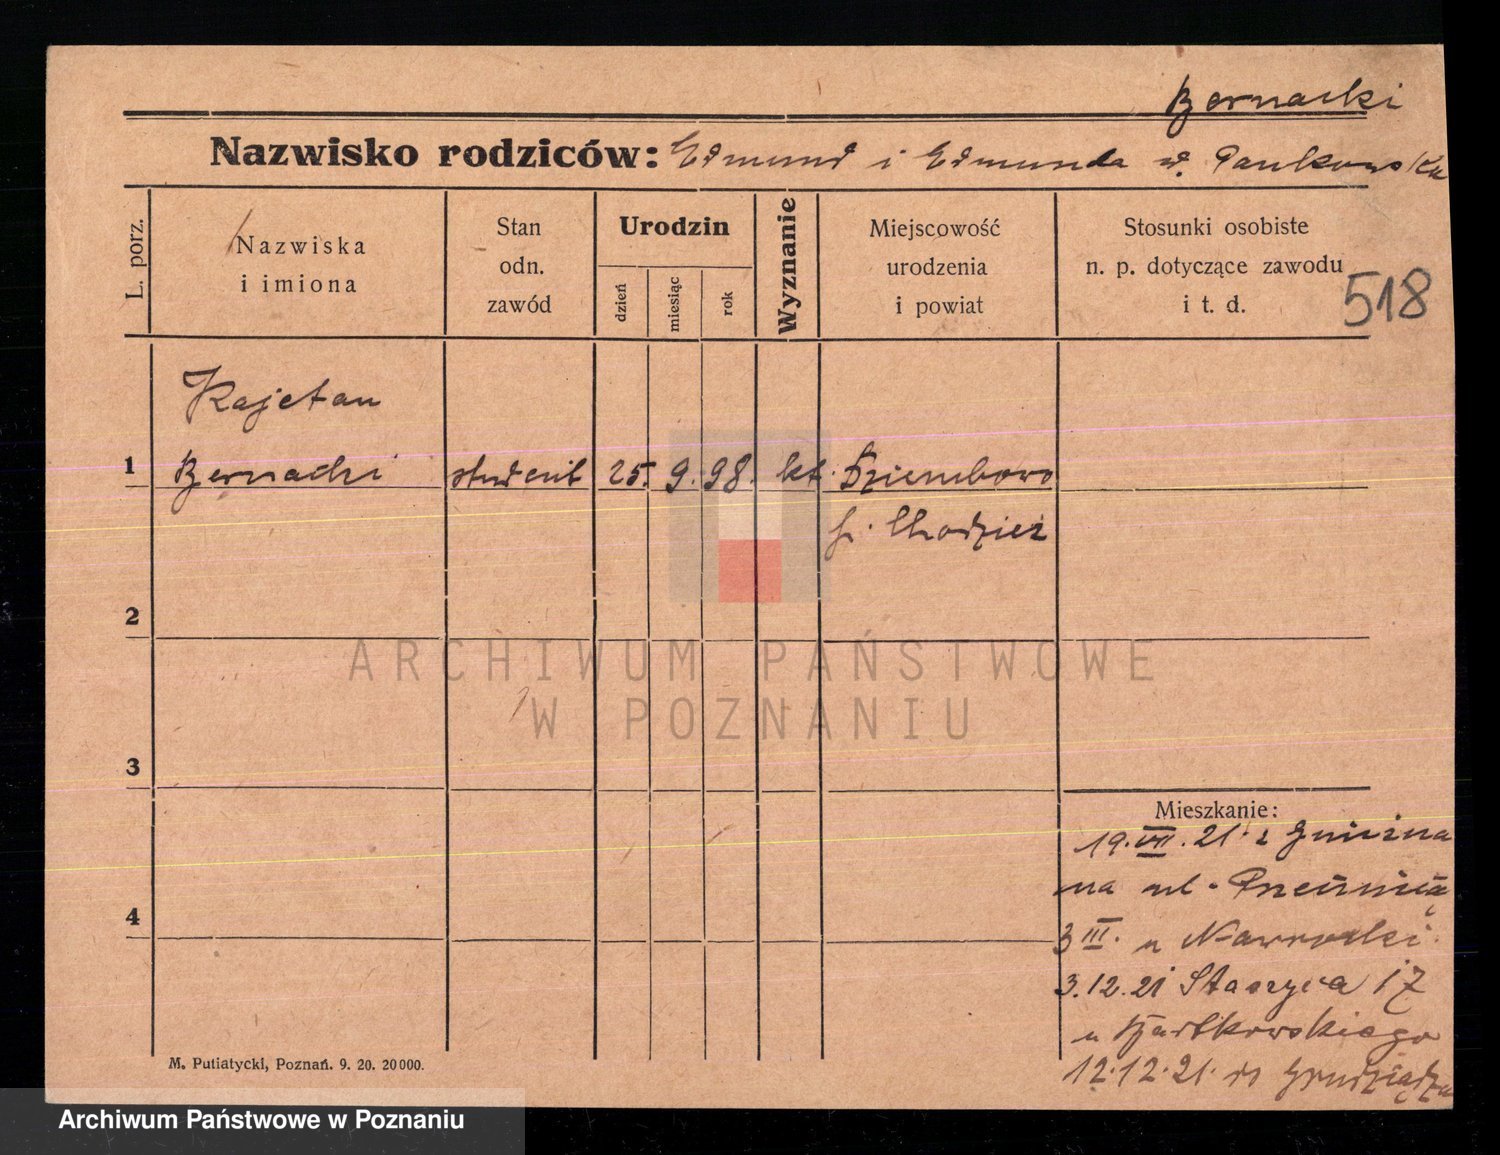 Bernacki
Nazwisko rodziców: Edmund i Edmunda z d. Pankowska
L. porz.
Nazwiska
i imiona
Stan
odn.
zawód
Urodzin
dzień
miesiąc
rok
Wyznanie
Miejscowość
urodzenia
i powiat
Stosunki osobiste
n. p. dotyczące zawodu
i t. d.
518
Kajetan
1 Bernacki student 25. 9. 98. kat. Dziembowo
p. Chodzież
2
3
4
Mieszkanie:
19.VII.21. z Gniezna
na ul.
3 III. u Nawrocki
3.12.21 Staszyca 17
u Bartkowskiego
12.12.21. do Grudziądza
M. Putiatycki, Poznań. 9. 20. 20000.
ARCHIWUM PAŃSTWOWE
W POZNANIU
Archiwum Państwowe w Poznaniu